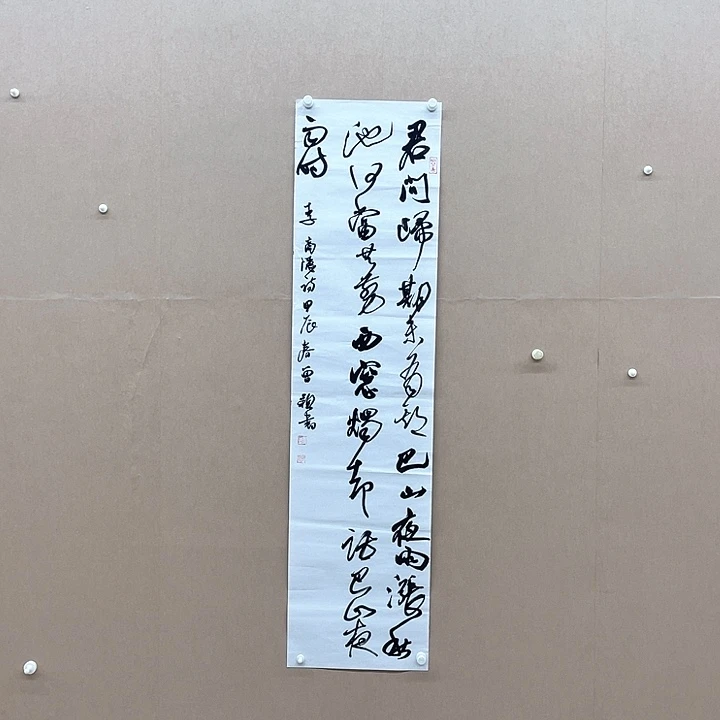 君問歸期未有期巴山夜雨漲秋
池何當共剪西窗燭却話巴山夜
雨時
李商隱詩甲辰春曾書